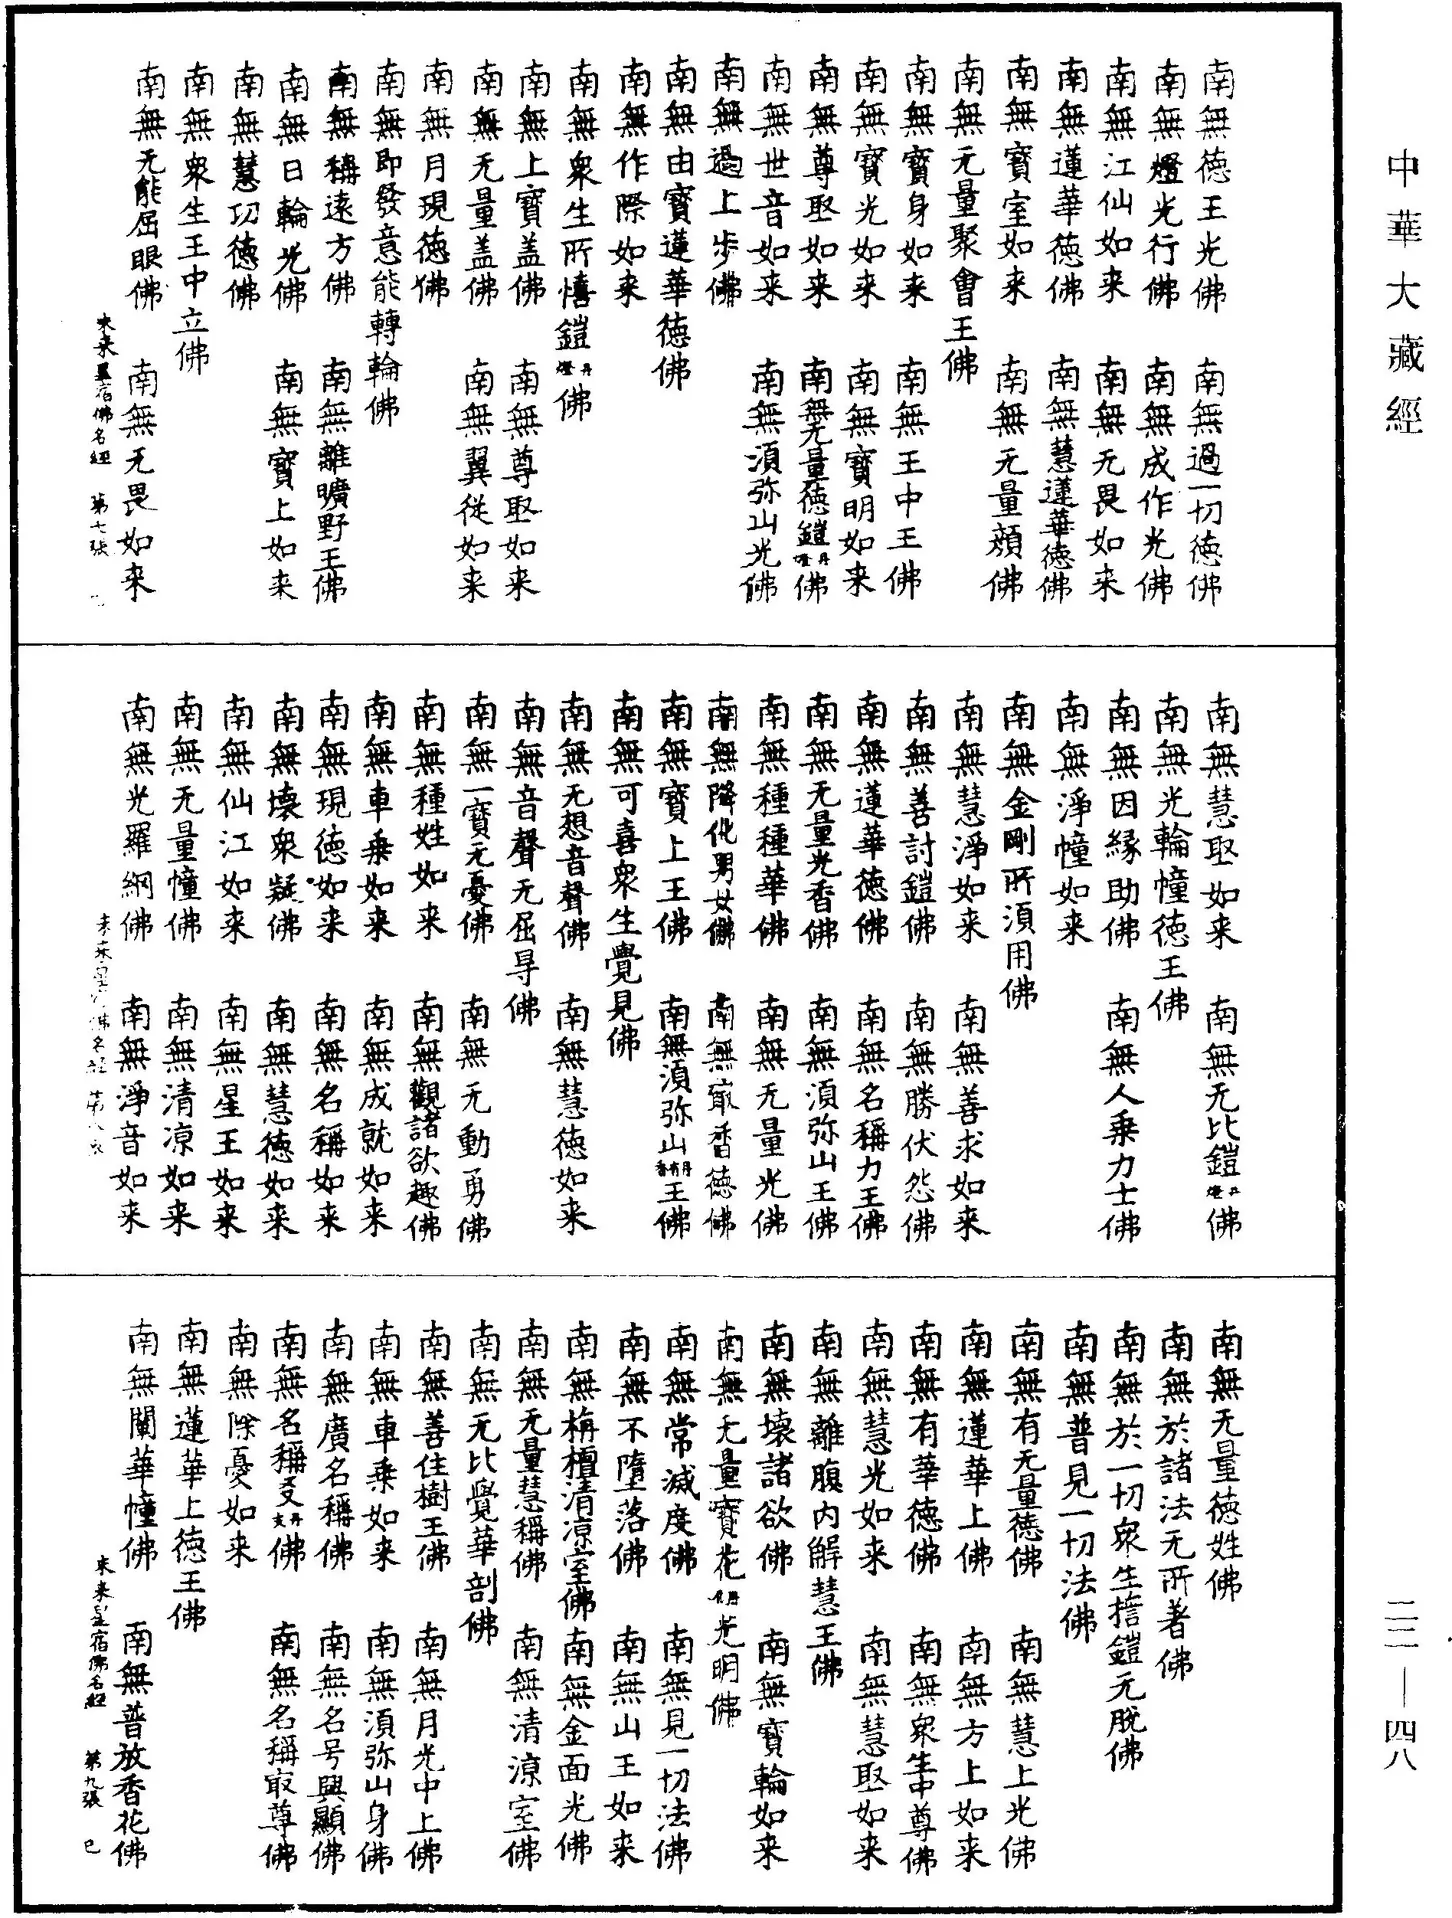 中華大藏經
南無德王光佛　南無過一切德佛
南無燈光行佛　南無成作光佛
南無江仙如来　南無无畏如来
南無蓮華德佛　南無慧蓮華德佛
南無寶室如来　南無无量顏佛
南無无量聚會王佛
南無寶身如来　南無王中王佛
南無寶光如来　南無寶明如来
南無尊㝡如来　南無无量德鎧丹燈佛
南無世音如来　南無湏弥山光佛
南無過上步佛
南無由寶蓮華德佛
南無作際如来
南無衆生所憘鎧丹燈佛
南無上寶盖佛　南無尊㝡如来
南無无量盖佛　南無翼從如来
南無月現德佛
南無即發意能轉輪佛
南無稱遠方佛　南無離曠野王佛
南無日輪光佛　南無寶上如来
南無慧功德佛
南無衆生王中立佛
南無无能屈眼佛　南無无畏如来
未来星宿佛名經　第七張
南無慧㝡如来　南無无比鎧丹燈佛
南無光輪幢德王佛
南無因緣助佛　南無人乗力士佛
南無淨幢如来
南無金剛所湏用佛
南無慧淨如来　南無善求如来
南無善討鎧佛　南無勝伏怨佛
南無蓮華德佛　南無名稱力王佛
南無无量光香佛　南無湏弥山王佛
南無種種華佛　南無无量光佛
南無降化男女佛　南無㝡香德佛
南無寶上王佛　南無湏弥山丹有香王佛
南無可喜衆生覺見佛
南無无想音聲佛　南無慧德如来
南無音聲无屈㝵佛
南無一寶无憂佛　南無无動勇佛
南無種姓如来　南無觀諸欲趣佛
南無車乗如来　南無成就如来
南無現德如来　南無名稱如来
南無壞衆疑佛　南無慧德如来
南無仙江如来　南無星王如来
南無无量幢佛　南無清凉如来
南無光羅網佛　南無淨音如来
未来星宿佛名經　第八張
南無无量德姓佛
南無於諸法无所著佛
南無於一切衆生誓鎧无脫佛
南無普見一切法佛
南無有无量德佛　南無慧上光佛
南無蓮華上佛　南無方上如来
南無有華德佛　南無衆生中尊佛
南無慧光如来　南無慧㝡如来
南無離腹内解慧王佛
南無壞諸欲佛　南無寶輪如来
南無无量寶花丹光明佛
南無常滅度佛　南無見一切法佛
南無不墮落佛　南無山王如来
南無栴檀清凉室佛　南無金面光佛
南無无量慧稱佛　南無清凉室佛
南無无比覺華剖佛
南無善住樹王佛　南無月光中上佛
南無車乗如来　南無湏弥山身佛
南無廣名稱佛　南無名号興顯佛
南無名稱叏丹支佛　南無名稱㝡尊佛
南無除憂如来
南無蓮華上德王佛
南無闡華幢佛　南無普放香花佛
未来星宿佛名經　第九張　已
二二—四八